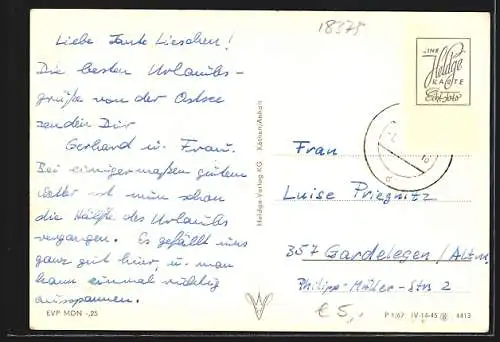 18375
Liebe Tante Lieschen!
Die besten Urlaubs-
grüße von der Ostsee
senden Dir
Gerhard u. Frau.
Bei einigermaßen gutem
Wetter ist nun schon
die Hälfte des Urlaubs
vergangen. Es gefällt uns
ganz gut hier, u. man
kann einmal richtig
ausspannen.
EVP MDN -,25
Heldge-Verlag KG Köthen/Anhalt
Heldge
KARTE
Echt Foto
Frau
Luise Priegnitz
357 Gardelegen/Altm.
Philipp-Müller-Str 2
€ 5,-
P 1/67 IV-14-45 4413